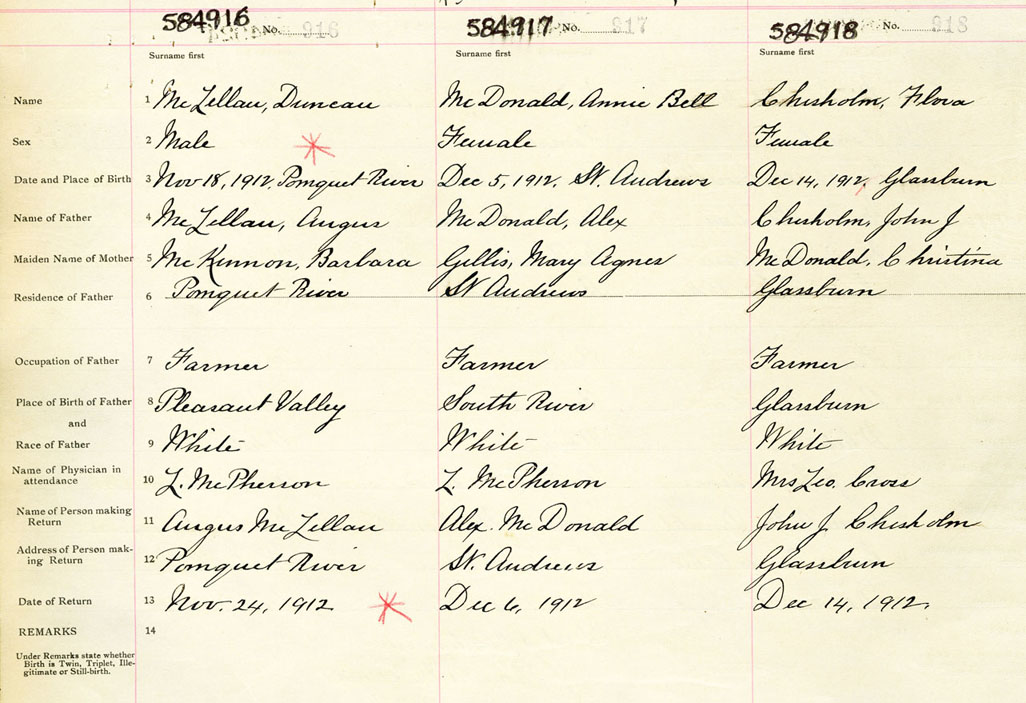 584916 No. 916 584917 No. 817 584918 No. 918
Surname first Surname first Surname first
Name 1 McLellan, Duncan McDonald, Annie Bell Chisholm, Flora
Sex 2 Male Female Female
Date and Place of Birth 3 Nov 18, 1912, Pomquet River Dec 5, 1912, St. Andrews Dec 14, 1912, Glassburn
Name of Father 4 McLellan, Angus McDonald, Alex Chisholm, John J
Maiden Name of Mother 5 McKinnon, Barbara Gillis, Mary Agnes McDonald, Christina
Residence of Father 6 Pomquet River St Andrews Glassburn
Occupation of Father 7 Farmer Farmer Farmer
Place of Birth of Father 8 Pleasant Valley South River Glassburn
and
Race of Father 9 White White White
Name of Physician in
attendance 10 L. McPherson L. McPherson Mrs Leo. Cross
Name of Person making
Return 11 Angus McLellan Alex. McDonald John J. Chisholm
Address of Person mak-
ing Return 12 Pomquet River St. Andrews Glassburn
Date of Return 13 Nov. 24, 1912 Dec 6, 1912 Dec 14, 1912.
REMARKS 14
Under Remarks state whether
Birth is Twin, Triplet, Ille-
gitimate or Still-birth.